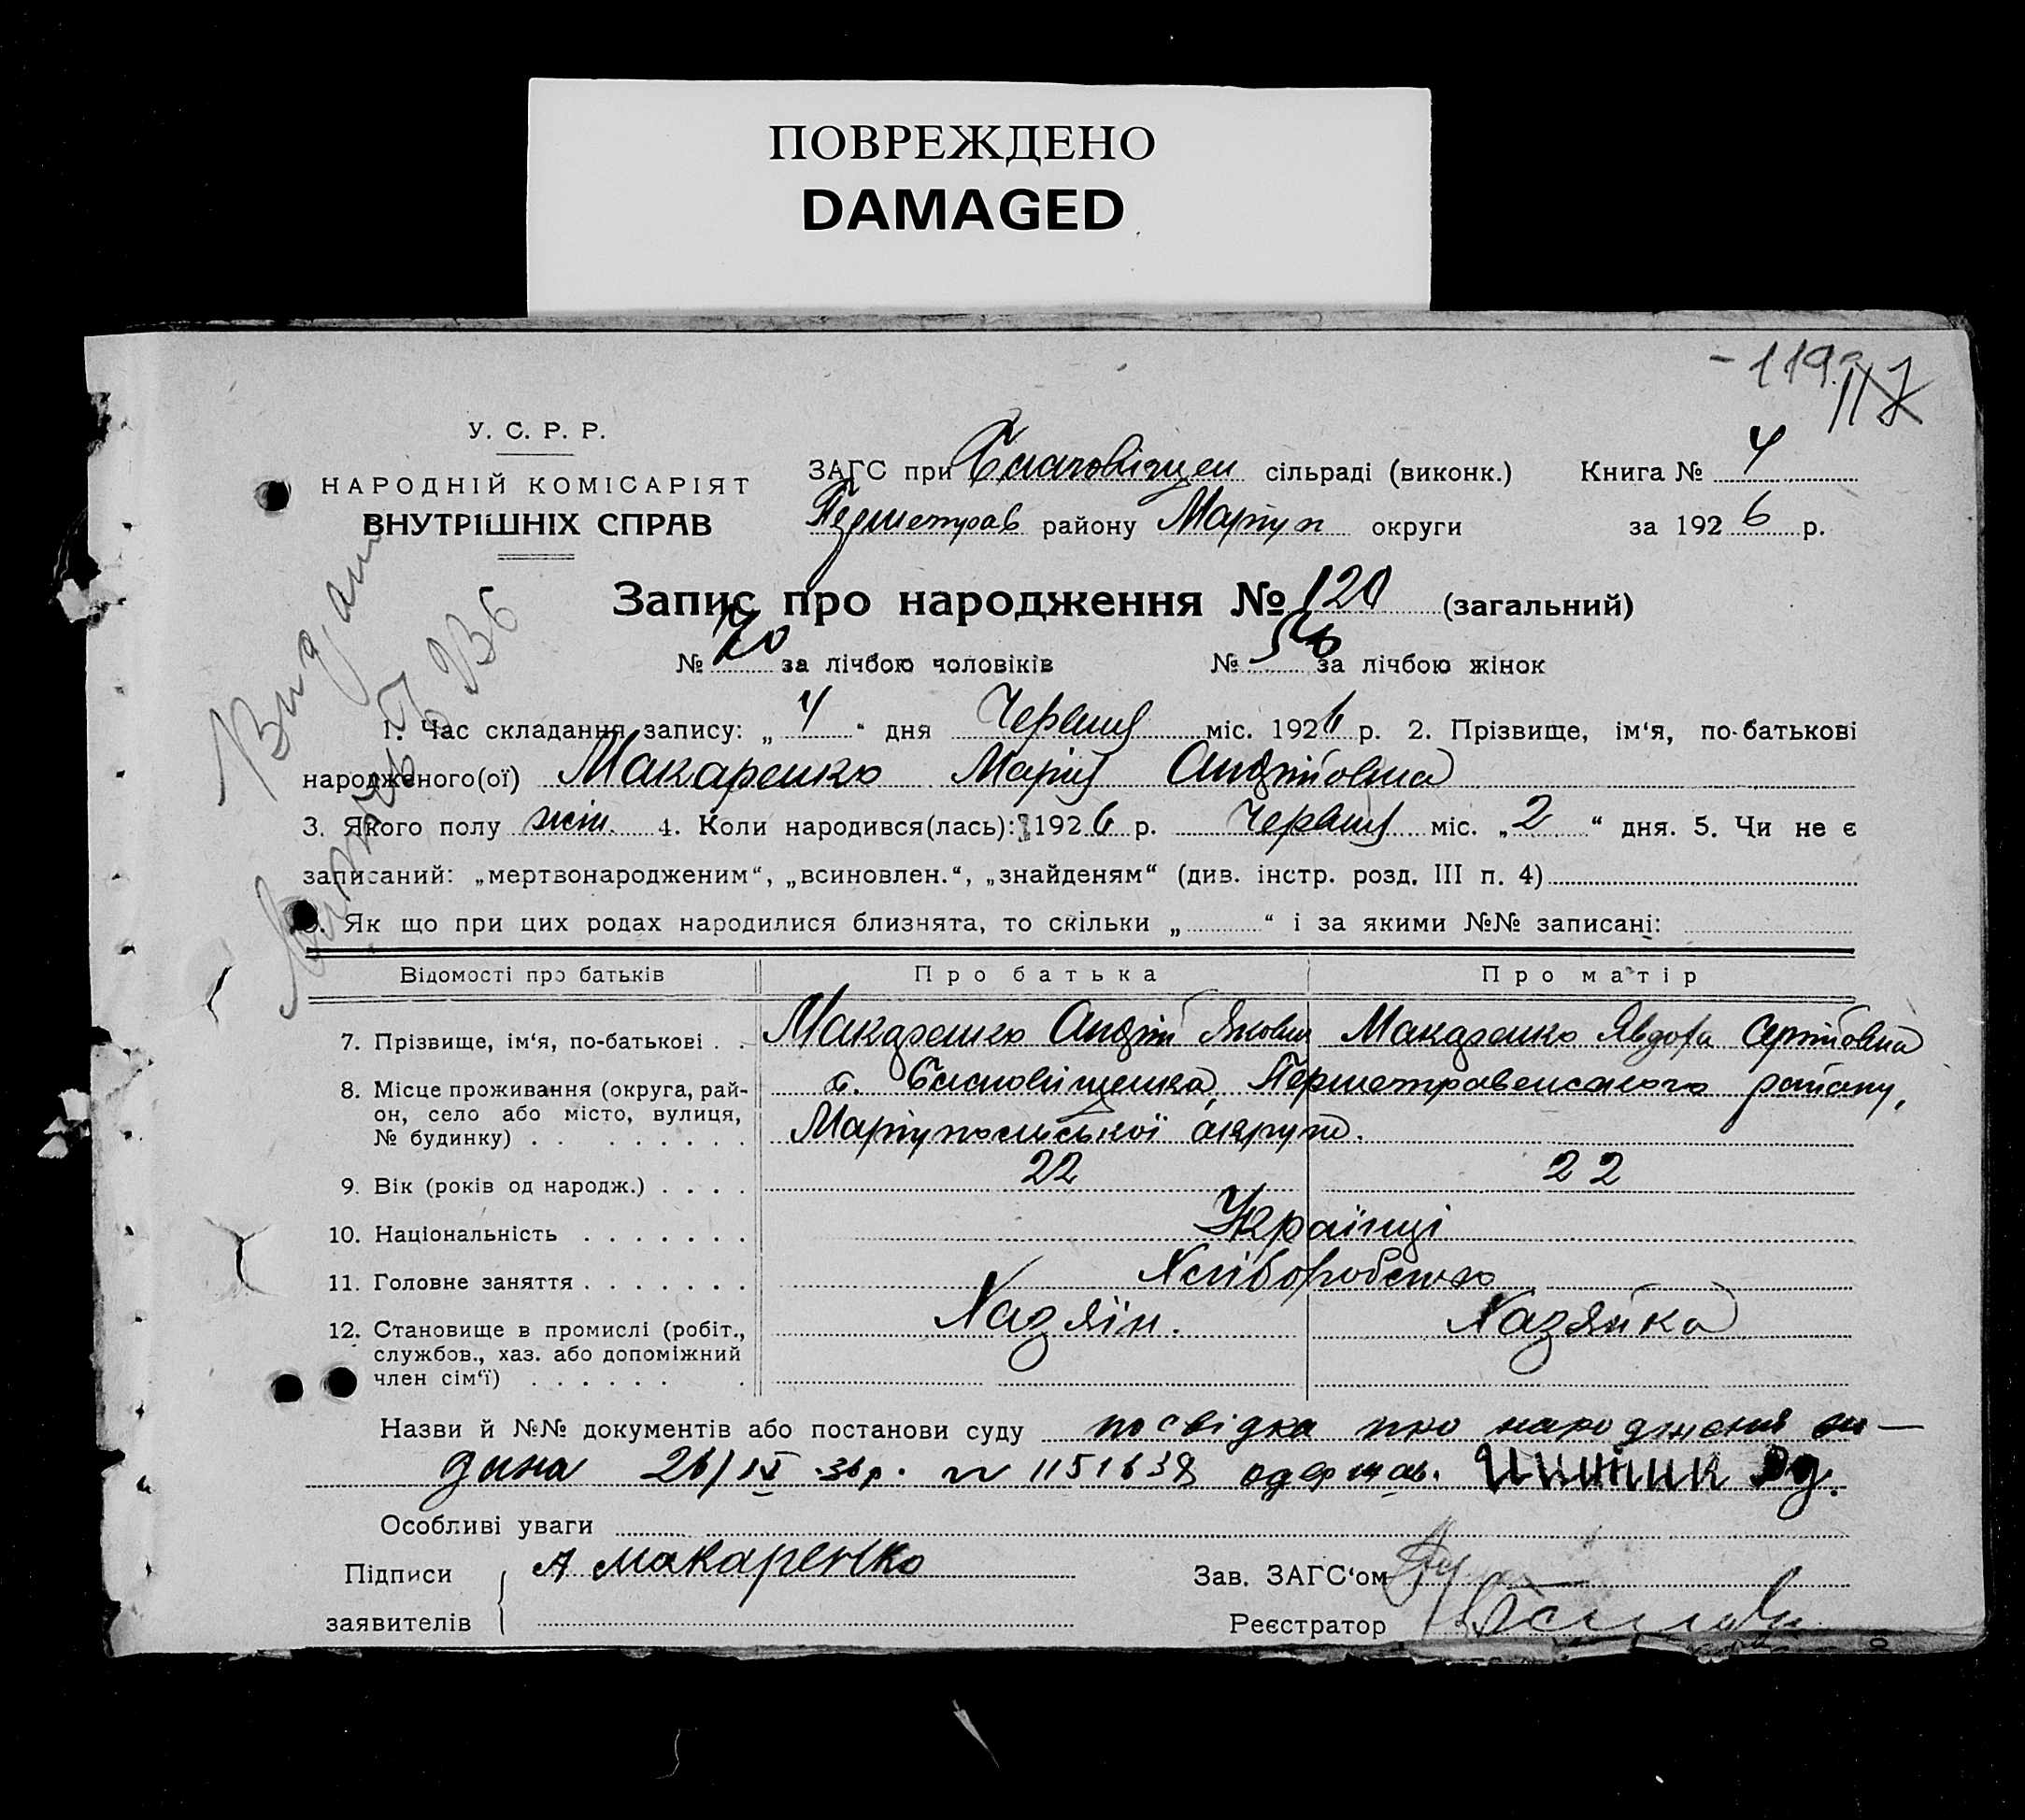 ПОВРЕЖДЕНО
DAMAGED
- 119
117
У. С. Р. Р.
НАРОДНІЙ КОМІСАРІЯТ
ВНУТРІШНІХ СПРАВ
ЗАГС при Благовіщен сільраді (виконк.) Книга № 4
Першетрав району Маріуп округи за 1926 р.
Запис про народження № 120 (загальний)
№ за лічбою чоловіків № за лічбою жінок
1. Час складання запису: „ 4 “ дня Червня міс. 1926 р. 2. Прізвище, ім‘я, по-батькові
народженого(ої) Макаренко Марія Андрійовна
3. Якого полу жін. 4. Коли народився(лась): 1926 р. Червня міс. „ 2 “ дня. 5. Чи не є
записаний: „мертвонародженим“, „всиновлен.“, „знайденям“ (див. інстр. розд. III п. 4)
Як що при цих родах народилися близнята, то скільки „ “ і за якими №№ записані:
Відомості про батьків Про батька Про матір
7. Прізвище, ім‘я, по-батькові . . Макаренко Андрій Якович Макаренко Явдоха Сергійовна
8. Місце проживання (округа, рай- с. Благовіщенка, Першетравенського району,
он, село або місто, вулиця,
№ будинку) . . Маріупольської округи.
9. Вік (років од народж.) . . . . 22 22
10. Національність . . . . . . . Українці
11. Головне заняття . . . . . . . Хліборобство
12. Становище в промислі (робіт., Хазяїн. Хазяйка
службов., хаз. або допоміжний
член сім‘ї) . . . . . .
Назви й №№ документів або постанови суду посвідка про народження ви-
дана 26/IX 36 р. № 1151638 одержав.
Особливі уваги
Підписи А Макаренко Зав. ЗАГС‘ом
заявителів Реєстратор